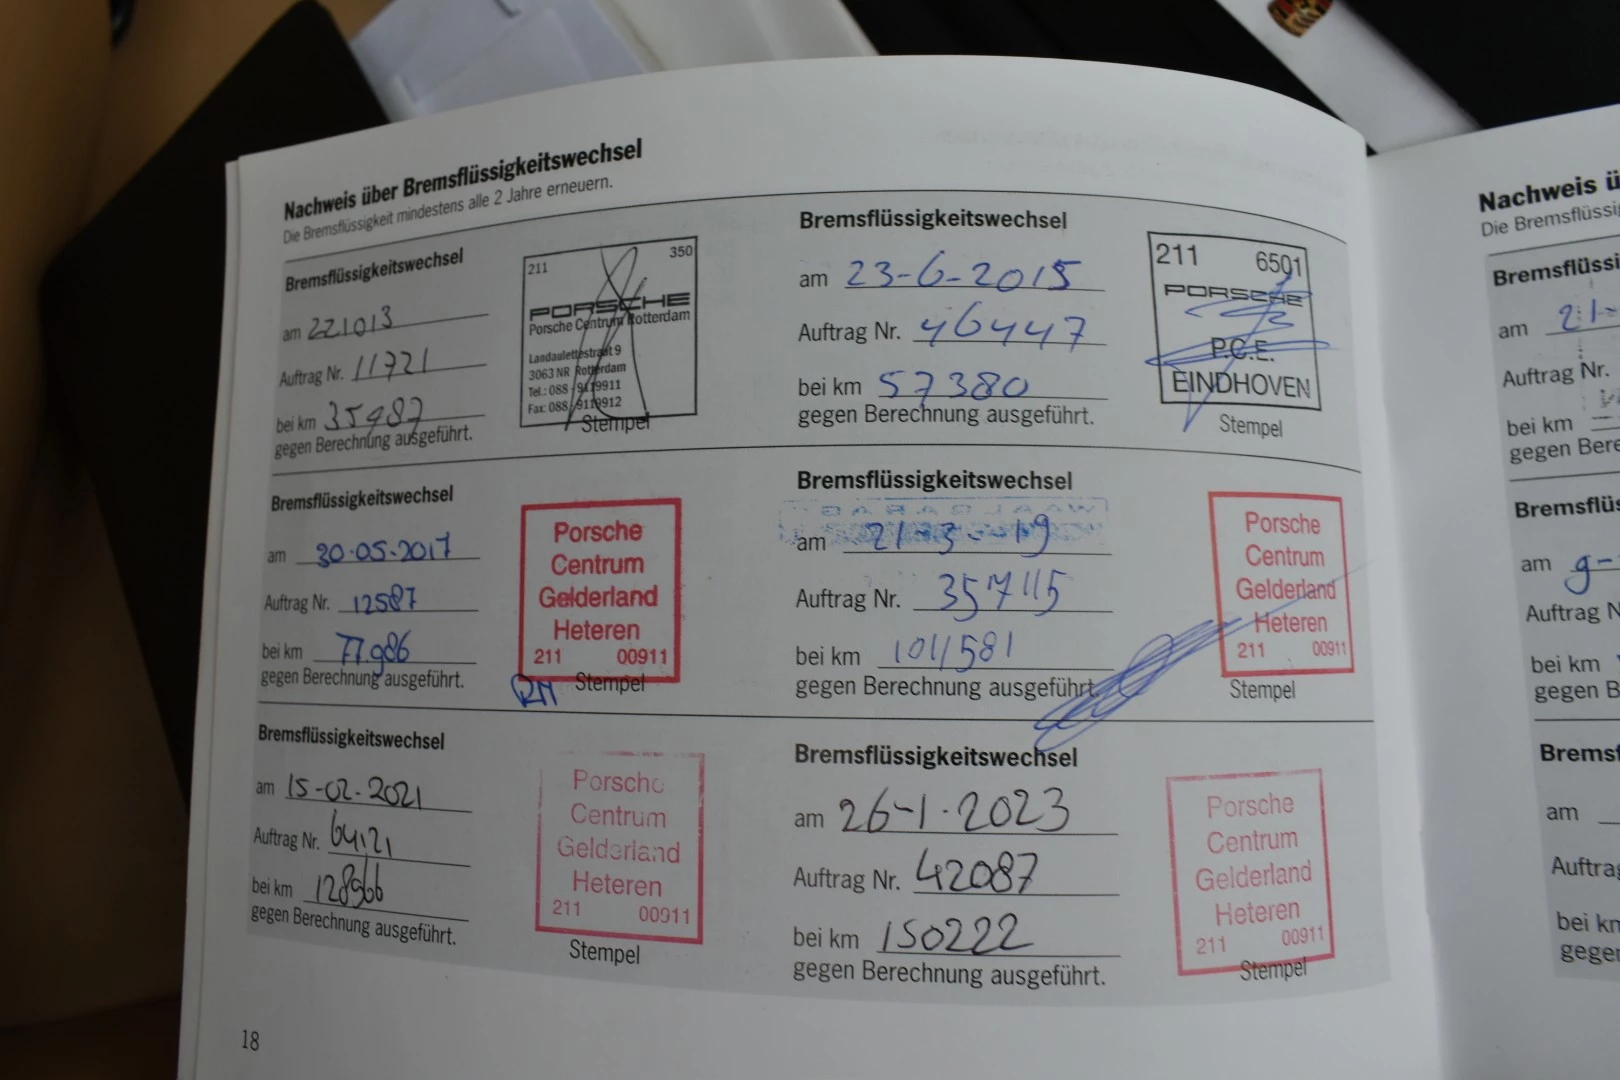 Nachweis über Bremsflüssigkeitswechsel
Die Bremsflüssigkeit mindestens alle 2 Jahre erneuern.
Bremsflüssigkeitswechsel
am 221013
Auftrag Nr. 11721
bei km 35487
gegen Berechnung ausgeführt.
211 350
PORSCHE
Porsche Centrum Rotterdam
Landaulettestraat 9
3063 NR Rotterdam
Tel.: 088 - 9119911
Fax: 088 - 9119912
Stempel
Bremsflüssigkeitswechsel
am 23-6-2015
Auftrag Nr. 46447
bei km 57380
gegen Berechnung ausgeführt.
211 6501
PORSCHE
P.C.E.
EINDHOVEN
Stempel
Bremsflüssigkeitswechsel
am 30-05-2017
Auftrag Nr. 12587
bei km 77.986
gegen Berechnung ausgeführt.
Porsche
Centrum
Gelderland
Heteren
211 00911
Stempel
Bremsflüssigkeitswechsel
am 21-3-19
Auftrag Nr. 357115
bei km 101581
gegen Berechnung ausgeführt.
Porsche
Centrum
Gelderland
Heteren
211 00911
Stempel
Bremsflüssigkeitswechsel
am 15-02-2021
Auftrag Nr. 64121
bei km 128966
gegen Berechnung ausgeführt.
Porsche
Centrum
Gelderland
Heteren
211 00911
Stempel
Bremsflüssigkeitswechsel
am 26-1-2023
Auftrag Nr. 42087
bei km 150222
gegen Berechnung ausgeführt.
Porsche
Centrum
Gelderland
Heteren
211 00911
Stempel
18
Nachweis ü
Die Bremsflüssig
Bremsflüssi
am 21-
Auftrag Nr.
bei km
gegen Bere
Bremsflüs
am 9-
Auftrag N
bei km
gegen B
Bremsf
am
Auftra
bei km
gegen